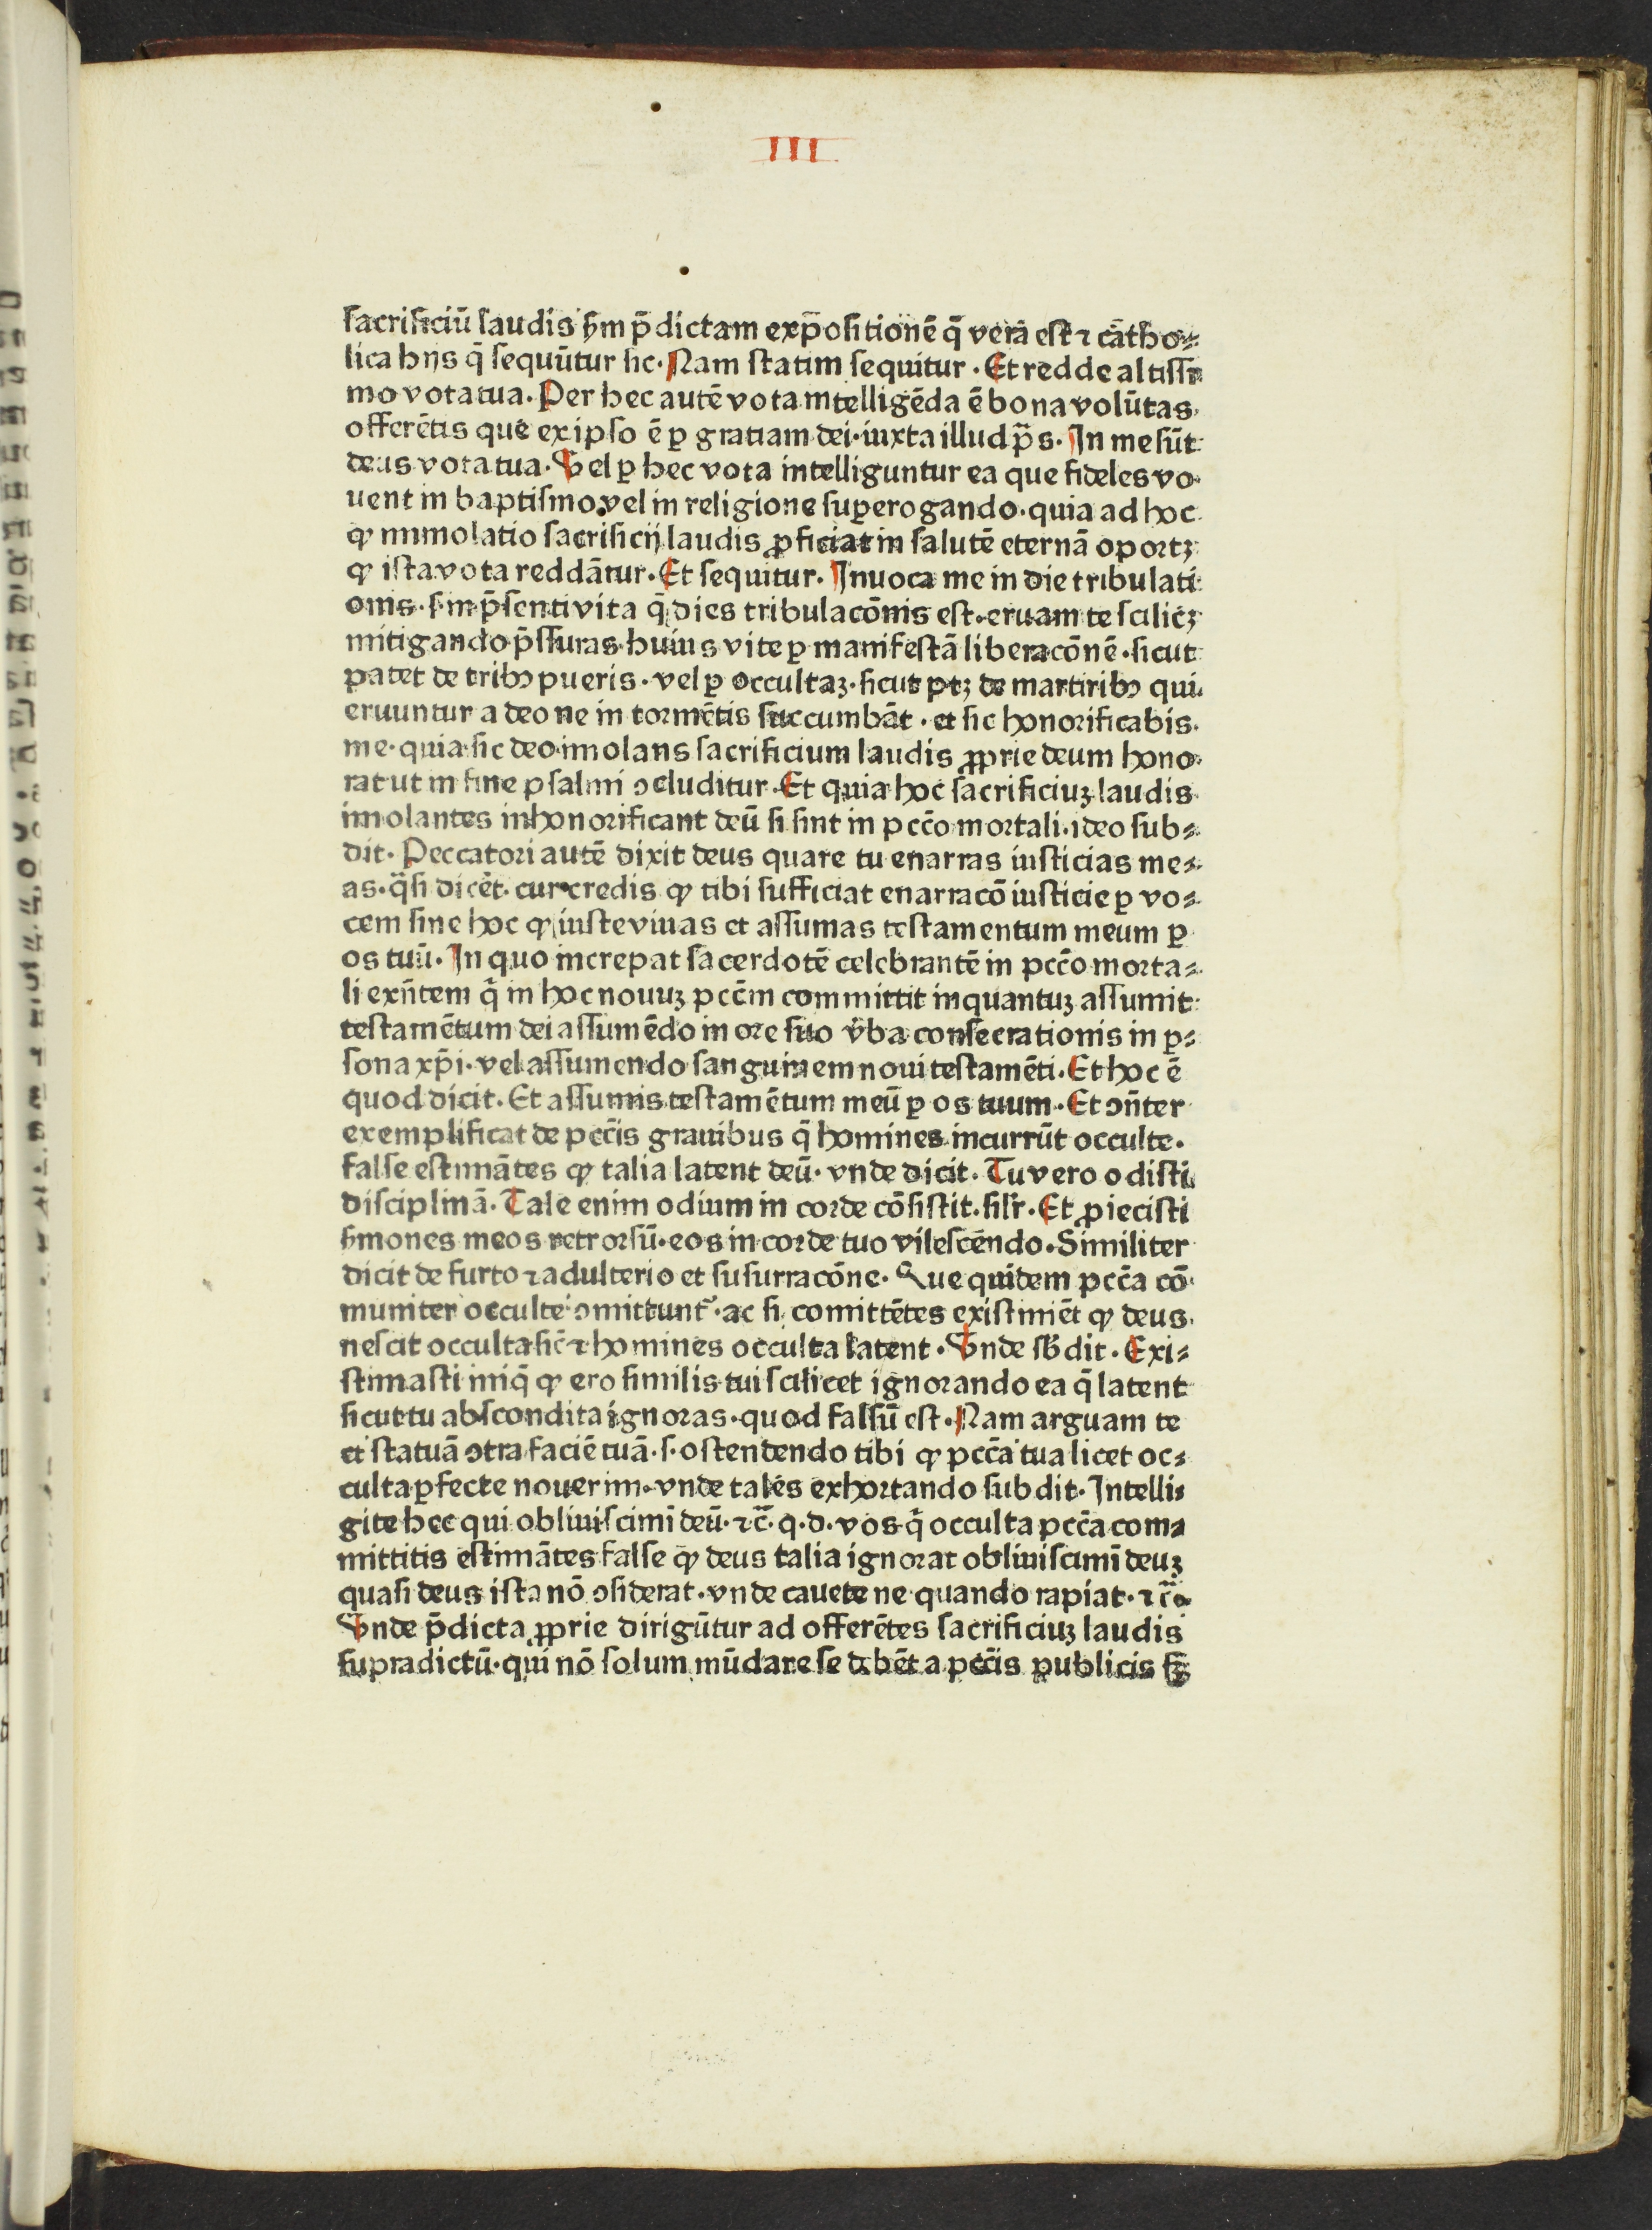 III
sacrificiū laudis ẜm p̄dictam exp̄ositionē q̄ vera est ⁊ catho⸗
lica hijs q̄ sequūtur sic. Nam statim sequitur. Et redde altissi
mo vota tua. Per hec autē vota intelligēda ē bona volūtas
offerētis que ex ipso ē ꝑ gratiam dei. iuxta illud p̄s. In me sūt
deus vota tua. Vel ꝑ hec vota intelliguntur ea que fideles vo
uent in baptismo vel in religione suꝑerogando. quia ad hoc
ꝙ immolatio sacrificij laudis ꝓficiat in salutē eternā oportꝫ
ꝙ ista vota reddātur. Et sequitur. Inuoca me in die tribulati
onis. s. in p̄senti vita q̄ dies tribulacōnis est. eruam te scilicꝫ
mitigando p̄ssuras huius vite ꝑ manifestā liberacōnē. sicut
patet de tribꝰ pueris. vel ꝑ occultaꝫ. sicut ptꝫ de martiribꝰ qui
eruuntur a deo ne in tormētis succumbāt. et sic honorificabis
me. quia sic deo imolans sacrificium laudis ꝓprie deum hono
rat ut in fine psalmi ꝯcluditur. Et quia hoc sacrificiuꝫ laudis
imolantes inhonorificant deū si sint in pccō mortali. ideo sub⸗
dit. Peccatori autē dixit deus quare tu enarras iusticias me⸗
as. q̄si dicēt. cur credis ꝙ tibi sufficiat enarracō iusticie ꝑ vo⸗
cem sine hoc ꝙ iuste viuas et assumas testamentum meum ꝑ
os tuū. In quo increpat sacerdotē celebrantē in pccō morta⸗
li exn̄tem q̄ in hoc nouuꝫ pccm̄ committit inquantuꝫ assumit
testamētum dei assumēdo in ore suo v̄ba consecrationis in ꝑ⸗
sona xp̄i. vel assumendo sanguinem noui testamēti. Et hoc ē
quod dicit. Et assumis testamētum meū ꝑ os tuum. Et ꝯn̄ter
exemplificat de pccīs grauibus q̄ homines incurrūt occulte.
false estimātes ꝙ talia latent deū. vnde dicit. Tu vero odisti
disciplinā. Tale enim odium in corde cōsistit. silr̄. Et ꝓiecisti
ẜmones meos retrorsū. eos in corde tuo vilescēndo. Similiter
dicit de furto ⁊ adulterio et susurracōne. Que quidem pccā cō
muniter occulte ꝯmittunt᷑. ac si comittētes existimēt ꝙ deus
nescit occulta sic̄ ⁊ homines occulta latent. Vnde sb̄dit. Exi⸗
stimasti iniq̄ ꝙ ero similis tui scilicet ignorando ea q̄ latent
sicut tu abscondita ignoras. quod falsū est. Nam arguam te
et statuā ꝯtra faciē tuā. s. ostendendo tibi ꝙ pccā tua licet oc⸗
culta ꝑfecte nouerim. vnde tales exhortando subdit. Intelli⸗
gite hec qui obliuiscimī deū. ⁊c̄. q. d. vos q̄ occulta pccā com⸗
mittitis estimātes false ꝙ deus talia ignorat obliuiscimī deuꝫ
quasi deus ista nō ꝯsiderat. vnde cauete ne quando rapiat. ⁊c̄.
Vnde p̄dicta ꝓprie dirigūtur ad offerētes sacrificiuꝫ laudis
supradictū. qui nō solum mūdare se debēt a pccīs publicis sꝫ